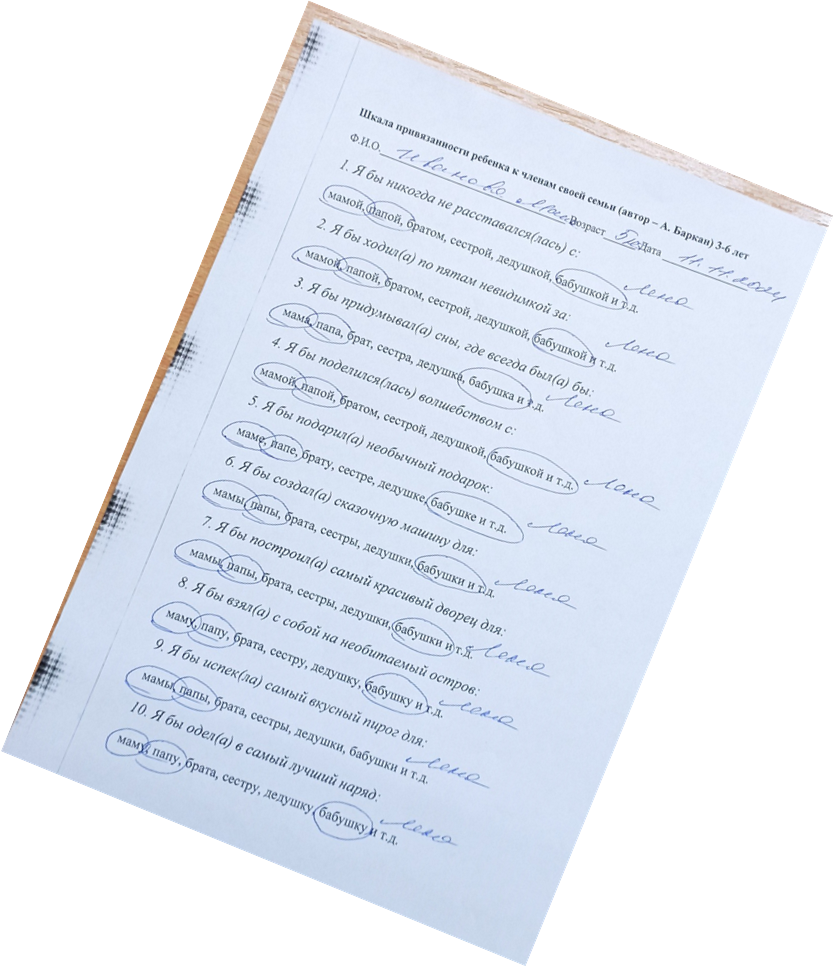 Шкала привязанности ребенка к членам своей семьи (автор – А. Баркан) 3-6 лет
Ф.И.О. Иванова Возраст 5 Дата 11.11.2024
1. Я бы никогда не расставался(лась) с:
мамой, папой, братом, сестрой, дедушкой, бабушкой и т.д. Лена
2. Я бы ходил(а) по пятам невидимкой за:
мамой, папой, братом, сестрой, дедушкой, бабушкой и т.д. Лена
3. Я бы придумывал(а) сны, где всегда был(а) бы:
мама, папа, брат, сестра, дедушка, бабушка и т.д. Лена
4. Я бы поделился(лась) волшебством с:
мамой, папой, братом, сестрой, дедушкой, бабушкой и т.д. Лена
5. Я бы подарил(а) необычный подарок:
маме, папе, брату, сестре, дедушке, бабушке и т.д. Лена
6. Я бы создал(а) сказочную машину для:
мамы, папы, брата, сестры, дедушки, бабушки и т.д. Лена
7. Я бы построил(а) самый красивый дворец для:
мамы, папы, брата, сестры, дедушки, бабушки и т.д. Лена
8. Я бы взял(а) с собой на необитаемый остров:
маму, папу, брата, сестру, дедушку, бабушку и т.д. Лена
9. Я бы испек(ла) самый вкусный пирог для:
мамы, папы, брата, сестры, дедушки, бабушки и т.д. Лена
10. Я бы одел(а) в самый лучший наряд:
маму, папу, брата, сестру, дедушку, бабушку и т.д. Лена